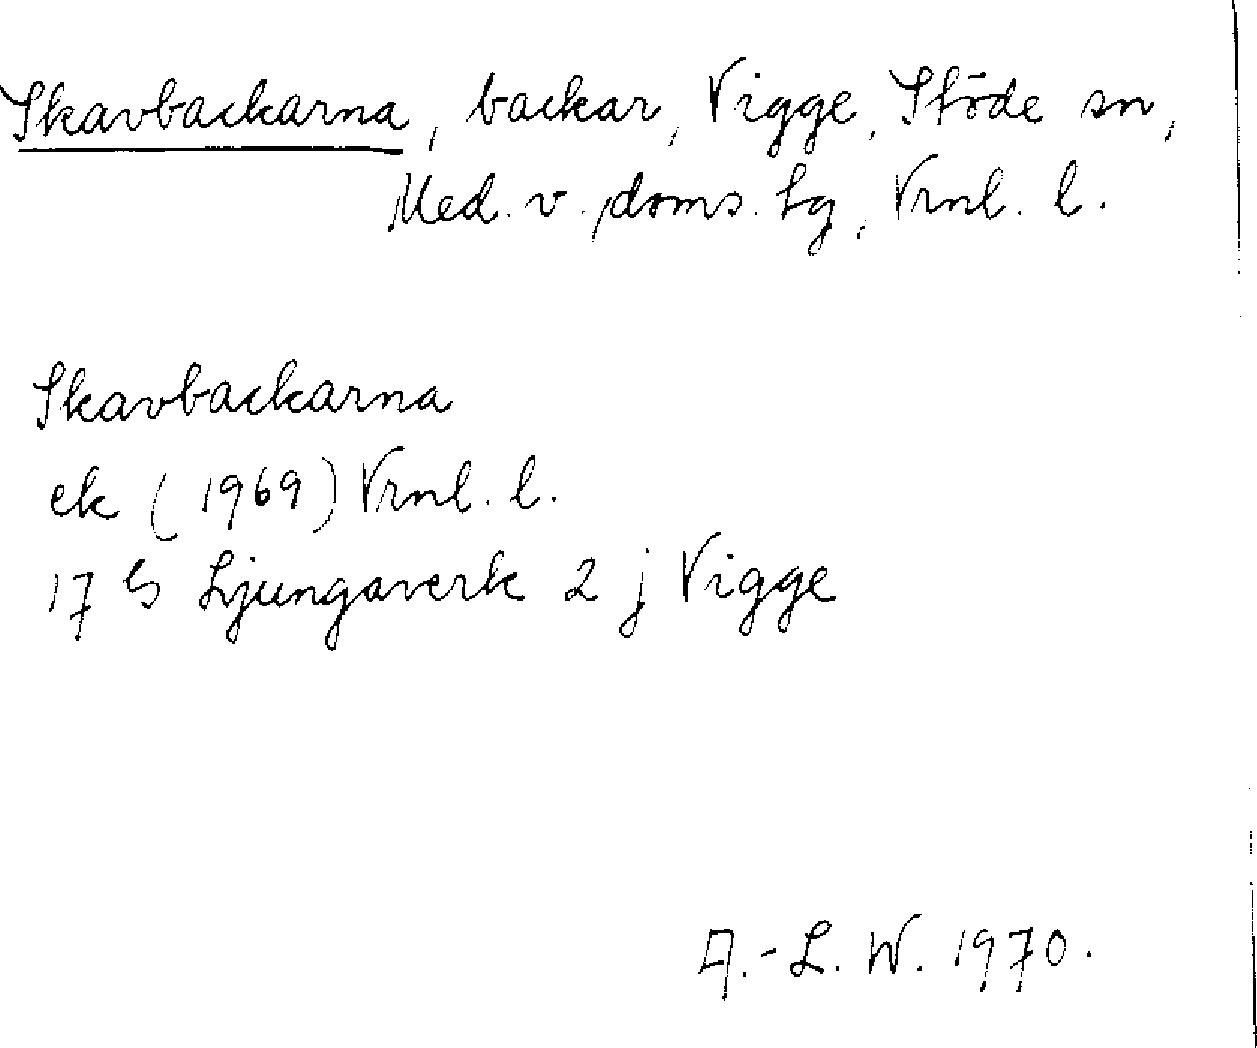 Skavbackarna, backar, Vigge, Stöde sn,
Med. v. doms. tg, Vrnl. l.
Skavbackarna
ek (1969) Vrnl. l.
17 G Ljungaverk 2 j Vigge
A.-L. W. 1970.